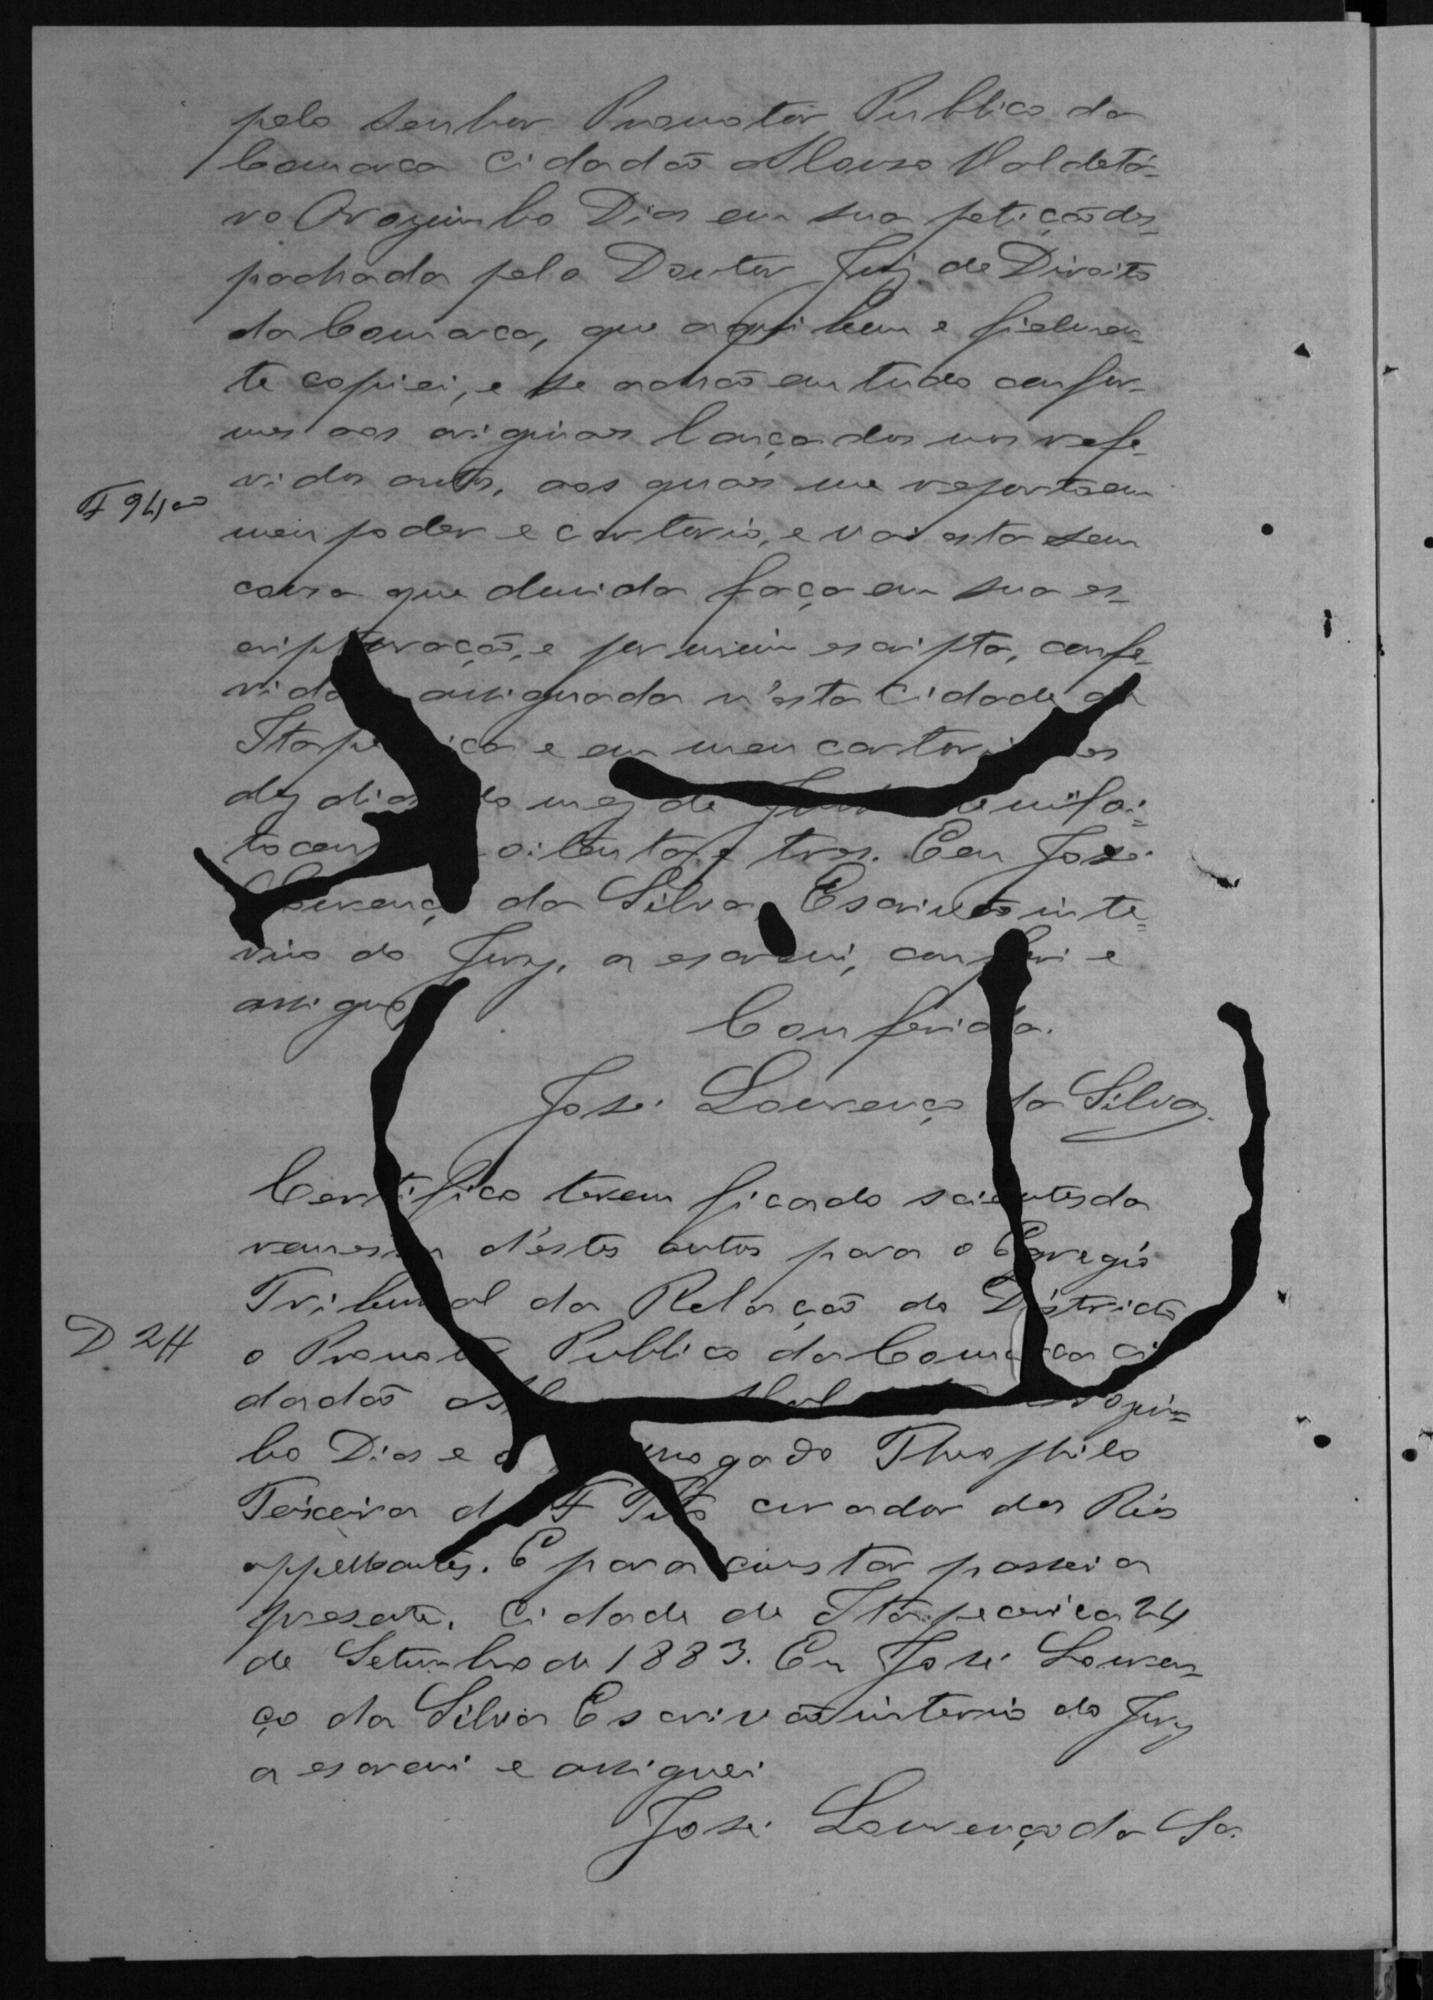 pelo Senhor Promotor Publico da
Comarca Cidadão Alonso Valdetá-
ro Orozimbo Dias em sua petição des-
pachada pelo Doutor Juiz de Direito
da Comarca, que aqui bem e fielmen-
te copiei, e se achão em tudo confor-
mes aos originaes lançados nos refe-
ridos autos, aos quaes me reporto em
F 94
meu poder e cartorio, e vai esta sem
cousa que duvida faça em sua es-
cripturação, e por mim escripta, confe-
rida assignada n'esta Cidade de
Itapecerica e em meu cartorio
dez dias do mez de de mil oi-
tocentos oitenta e tres. Eeu José
Lourenço da Silva, Escrivão inte-
rino do Jury, a escrevi, conferi e
assigno
Conferida.
José Lourenço da Silva.
Certifico terem ficado scientes da
remessa d'estes autos para o Egregio
Tribunal da Relação do Districto
D 2H
o Promotor Publico da Comarca ci-
dadão Orozim-
bo Dias e o Theophilo
Teixeira d F Tito curador dos Réos
appellantes. E para constar passei a
presente. Cidade de Itapecerica 24
de Setembro de 1883. Eu José Louren-
ço da Silva Escrivão interino do Jury
a escrevi e assignei
José Lourenço da Sa.